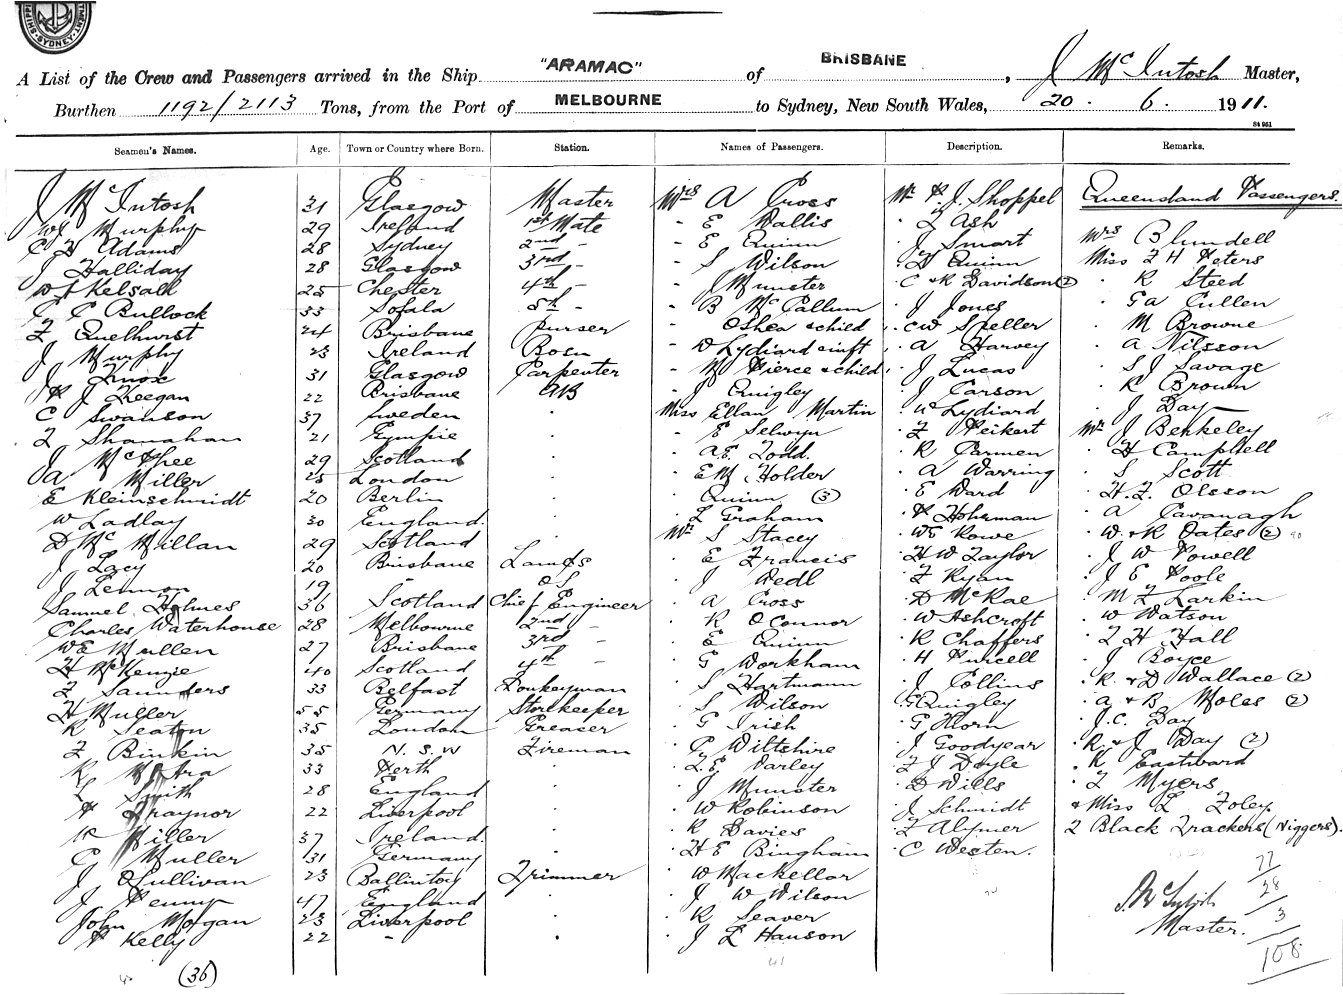 SHIPPING
SYDNEY
A List of the Crew and Passengers arrived in the Ship "ARAMAC" of BRISBANE, J McIntosh Master,
Burthen 1192/2113 Tons, from the Port of MELBOURNE to Sydney, New South Wales, 20 . 6 . 1911.
Seamen's Names. Age. Town or Country where Born. Station. Names of Passengers. Description. Remarks.
J McIntosh 31 Glasgow Master
WJ Murphy 29 Ireland 1st Mate
C H Adams 28 Sydney 2nd -
J Halliday 28 Glasgow 3rd -
W J Kelsall 25 Chester 4th -
C C Bullock 33 Sofala 5th -
F Quelhurst 24 Brisbane Purser
J Murphy 23 Ireland Bosn
J Knox 31 Glasgow Carpenter
P J Keegan 22 Brisbane AB
C Swanson 37 Sweden .
F Shanahan 21 Gympie .
J McPhee 29 Scotland .
A Miller 25 London .
E Kleinschmidt 20 Berlin .
W Ladlay 30 England .
D McMillan 29 Scotland .
J Lacy 20 Brisbane Lamps
J Lennon 19 OS
Samuel Holmes 36 Scotland Chief Engineer
Charles Waterhouse 28 Melbourne 2nd -
WE Mullen 27 Brisbane 3rd -
H McKenzie 40 Scotland 4th -
F Saunders 33 Belfast Donkeyman
H Muller 55 Germany Storekeeper
R Seaton 35 London Greaser
F Binkin 35 N.S.W Fireman
R McAra 33 Perth .
L Smith 28 England .
P Traynor 22 Liverpool .
R Miller 37 Ireland .
G Muller 31 Germany .
J OSullivan 23 Ballintoy Trimmer
J Penny 47 England .
John Morgan 23 Liverpool .
P Kelly 22 - .
(36)
Mrs A Cross
- E Wallis
- E Quinn
- S Wilson
- J Munster
- B McCallum
- OShea & child
- W Lydiard & inft
- M Pierce & child
. J Quigley
Miss Ellan Martin
- E Selwyn
. A.E. Todd
. EM Holder
. Quinn (3)
. L Graham
Mr S Stacey
. E Francis
. J Wedl
. A Cross
. R OConnor
. E Quinn
. G Workham
. S Hartmann
. S Wilson
. G Irish
. C Wiltshire
. F.E. Varley
. J Munster
. W Robinson
. R Davies
. H E Bingham
. W Mackellar
. J W Wilson
. R Seaver
. J L Hanson
41
Mr P.J. Shoppel
. F Ash
. J Smart
. H Quinn
. C & R Davidson (2)
. J Jones
. CW Speller
. A Harvey
. J Lucas
. J Carson
. W Lydiard
. F Peikert
. R Carmen
. A Warring
. E Ward
. P Hohrman
. WE Rowe
. H W Taylor
. F Ryan
. D McRae
. W Ashcroft
. R Chaffers
. H Purcell
. J Collins
. G Quigley
. G Horn
. J Goodyear
. F J Doyle
. D Wills
. J Schmidt
. F Alymer
. C Westen.
Queensland Passengers.
Mrs Blundell
Miss F H Peters
. R Steed
. GA Cullen
. M Browne
. A Nilsson
. S J Savage
. R Brown
. J Day
Mr J Berkeley
. H Campbell
. S Scott
. H. F. Olsson
. A Cavanagh
. W. & R Oates (2)
. J W Powell
. J E Poole
. M F Larkin
. W Watson
. F H Hall
. J Boyce
. R & D Wallace (2)
. A & B Moles (2)
. J.C. Day
. R & J Day (2)
. R Eastward
. F Myers
& Miss L Foley
2 Black Trackers (Niggers).
77
28
3
108
J. McIntosh
Master.